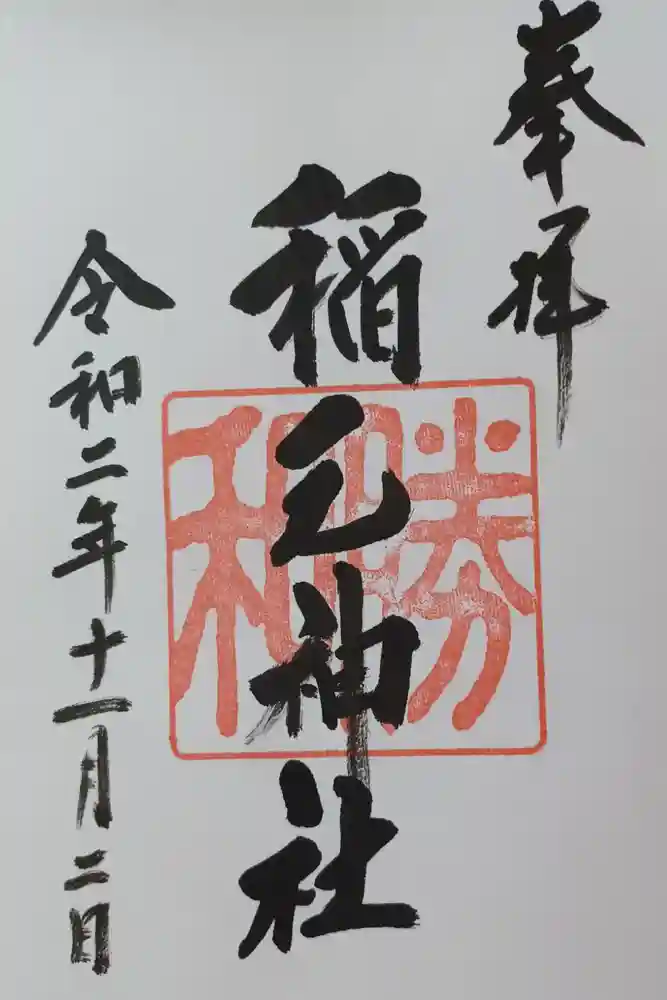 奉拝
稲毛神社
勝和
令和二年十一月二日